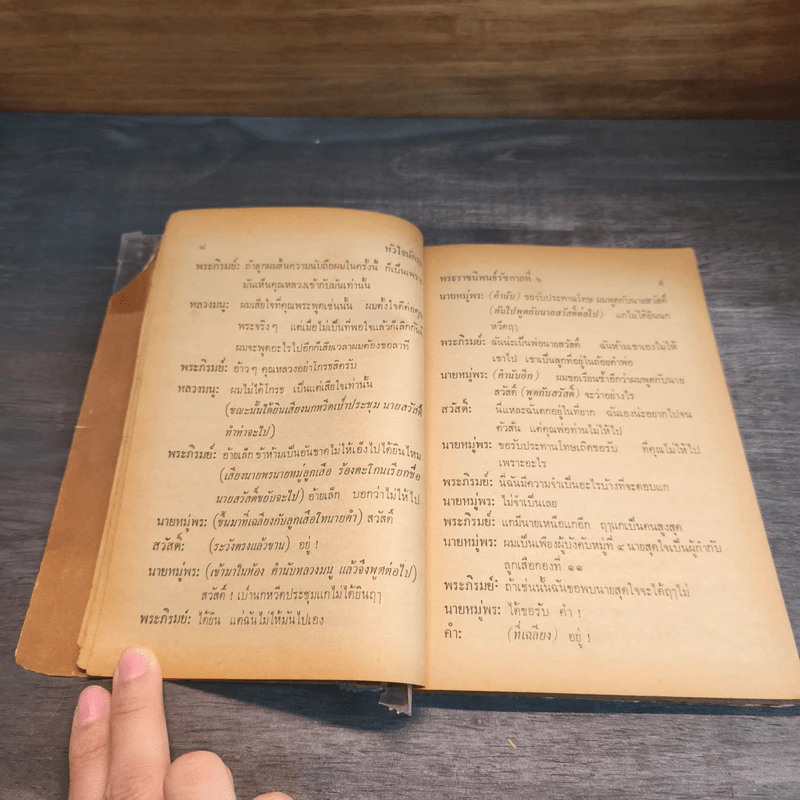 ๔ หัวใจนัก
พระภิรมย์: ถ้าลูกผมสิ้นความนับถือผมในครั้งนี้ ก็เป็นเพราะ
มันเห็นคุณหลวงเข้ากับมันเท่านั้น
หลวงมนู: ผมเสียใจที่คุณพระพูดเช่นนั้น ผมตั้งใจดีต่อคุณ
พระจริงๆ แต่เมื่อไม่เป็นที่พอใจแล้วก็เลิกกันที
ผมจะพูดอะไรไปอีกก็เสียเวลาผมต้องขอลาที
พระภิรมย์: อ้าวๆ คุณหลวงอย่าโกรธสิครับ
หลวงมนู: ผมไม่ได้โกรธ เป็นแต่เสียใจเท่านั้น
(ขณะนั้นได้ยินเสียงนกหวีดเป่าประชุม นายสวัสดิ์
ทำท่าจะไป)
พระภิรมย์: อ้ายเล็ก ข้าห้ามเป็นอันขาดไม่ให้เอ็งไปได้ยินไหม
(เสียงนายพรนายหมู่ลูกเสือ ร้องตะโกนเรียกชื่อ
นายสวัสดิ์ขยับจะไป) อ้ายเล็ก บอกว่าไม่ให้ไป
นายหมู่พร: (ขึ้นมาที่เฉลียงกับลูกเสือโทนายคำ) สวัสดิ์
สวัสดิ์: (ระวังตรงแล้วขาน) อยู่ !
นายหมู่พร: (เข้ามาในห้อง คำนับหลวงมนู แล้วจึงพูดต่อไป)
สวัสดิ์ ! เป่านกหวีดประชุมแกไม่ได้ยินฤๅ
พระภิรมย์: ได้ยิน แต่ฉันไม่ให้มันไปเอง
พระราชนิพนธ์รัชกาลที่ ๖ ๕
นายหมู่พร: (คำนับ) ขอรับประทานโทษ ผมพูดกับนายสวัสดิ์
(หันไปพูดกับนายสวัสดิ์ต่อไป) แกไม่ได้ยินนก
หวีดฤๅ
พระภิรมย์: ฉันน่ะเป็นพ่อนายสวัสดิ์ ฉันห้ามเขาเองไม่ให้
เขาไป เขาเป็นลูกที่อยู่ในถ้อยคำพ่อ
นายหมู่พร: (คำนับอีก) ผมขอเรียนซ้ำอีกว่าผมพูดกับนาย
สวัสดิ์ (พูดกับสวัสดิ์) จะว่าอย่างไร
สวัสดิ์: นี่แหละฉันตกอยู่ในที่ยาก ฉันเองน่ะอยากไปจน
ตัวสั่น แต่คุณพ่อท่านไม่ให้ไป
นายหมู่พร: ขอรับประทานโทษเถิดขอรับ ที่คุณไม่ให้ไป
เพราะอะไร
พระภิรมย์: นี่ฉันมีความจำเป็นอะไรบ้างที่จะตอบแก
นายหมู่พร: ไม่จำเป็นเลย
พระภิรมย์: แกมีนายเหนือแกอีก ฤๅแกเป็นคนสูงสุด
นายหมู่พร: ผมเป็นเพียงผู้บังคับหมู่ที่ ๔ นายสุดใจเป็นผู้กำกับ
ลูกเสือกองที่ ๑๑
พระภิรมย์: ถ้าเช่นนั้นฉันขอพบนายสุดใจจะได้ฤๅไม่
นายหมู่พร: ได้ขอรับ คำ !
คำ: (ที่เฉลียง) อยู่ !